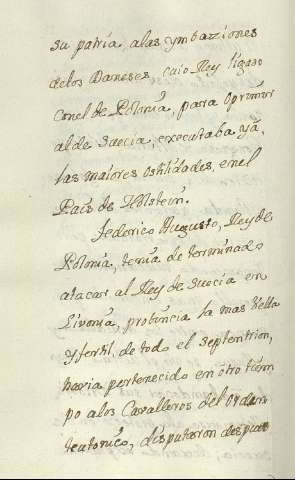 su patria, alas ymbaziones
delos Daneses, cuio Rey ligado
con el de Polonia, para oprimir
al de Suecia, executaba ya,
las maiores ostilidades, en el
Pais de Holstein.
Federico Augusto, Rey de
Polonia, tenia determinado
atacar al Rey de Suecia en
Livonia, probincia la mas bella
y fertil, de todo el septentrion,
havia pertenecido en otro tiem
po alos Cavalleros del Orden
teutonico, disputaron despues